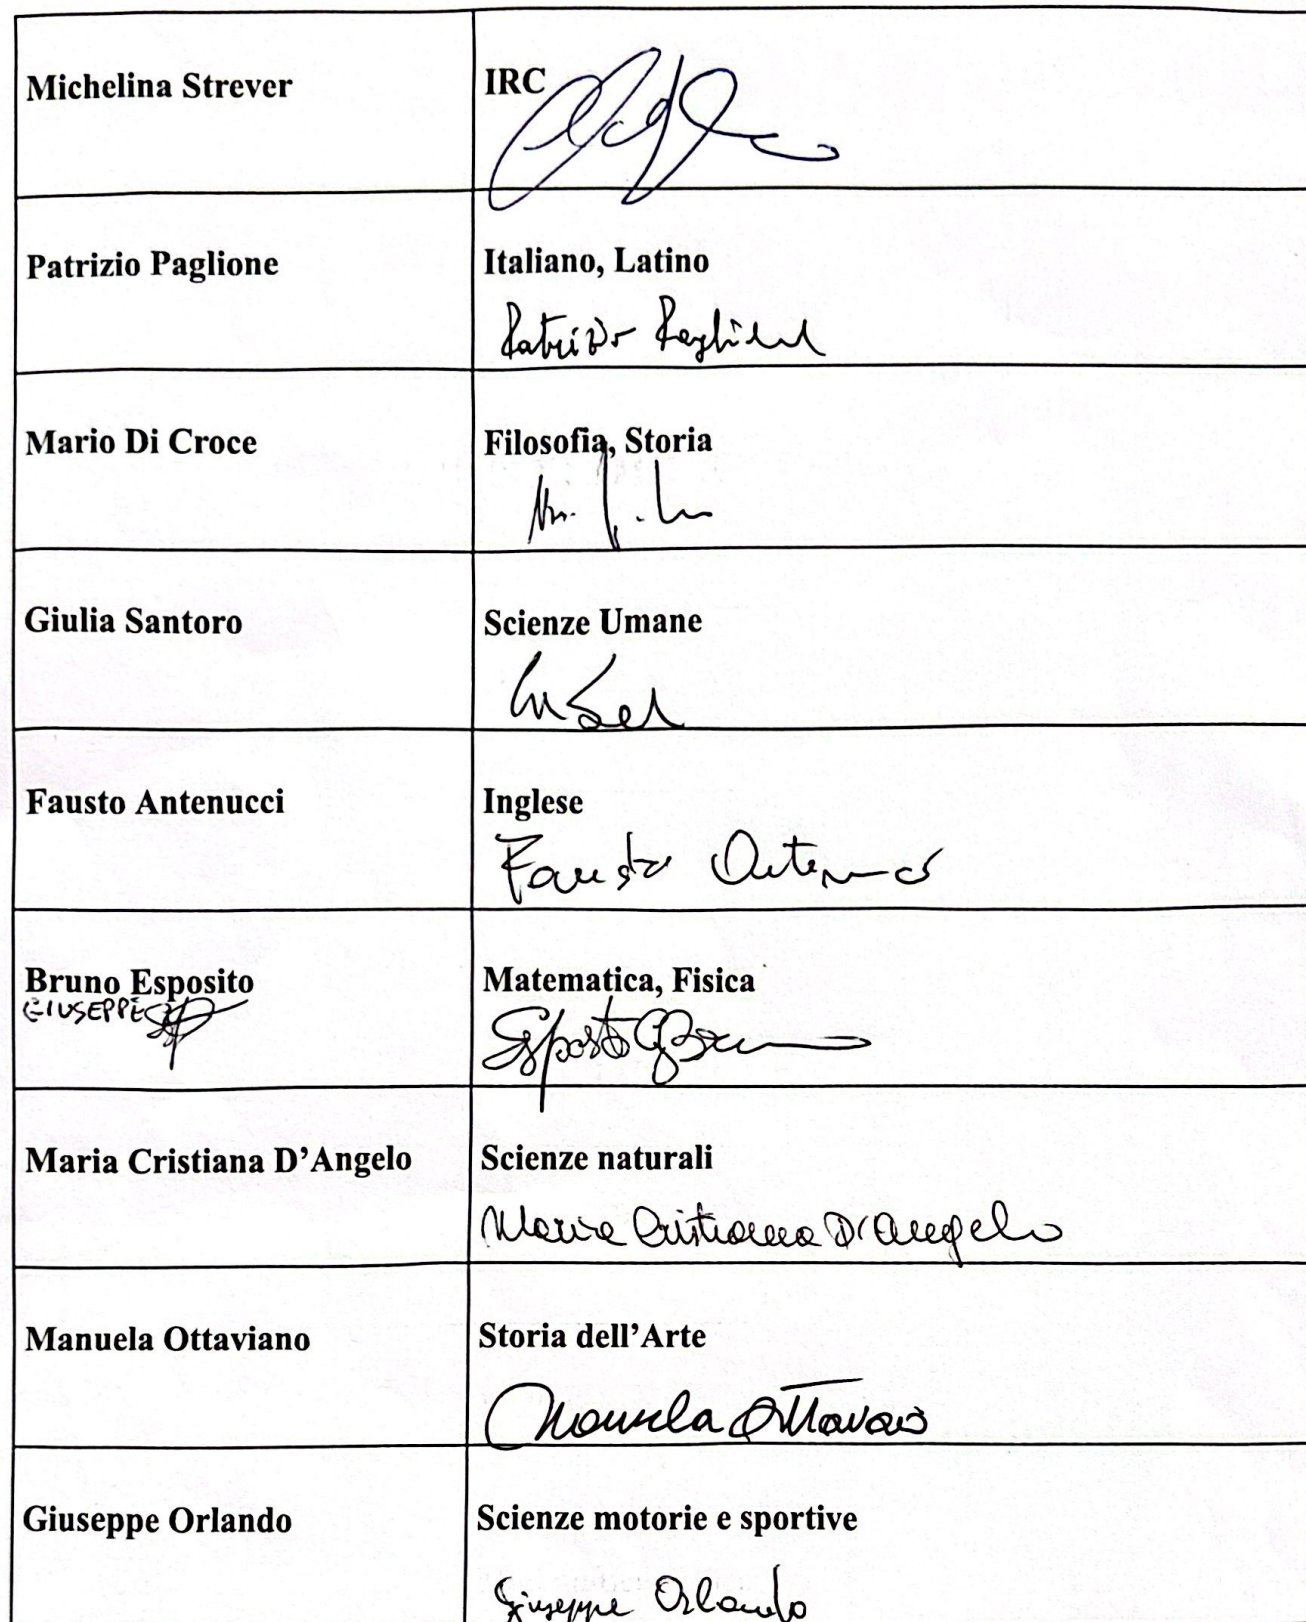 Michelina Strever
IRC
Patrizio Paglione
Italiano, Latino
Patrizio Paglione
Mario Di Croce
Filosofia, Storia
Giulia Santoro
Scienze Umane
Fausto Antenucci
Inglese
Fausto
Bruno Esposito
GIUSEPPE
Matematica, Fisica
Esposito G Bruno
Maria Cristiana D'Angelo
Scienze naturali
Maria Cristiana D'Angelo
Manuela Ottaviano
Storia dell'Arte
Manuela Ottaviano
Giuseppe Orlando
Scienze motorie e sportive
Giuseppe Orlando